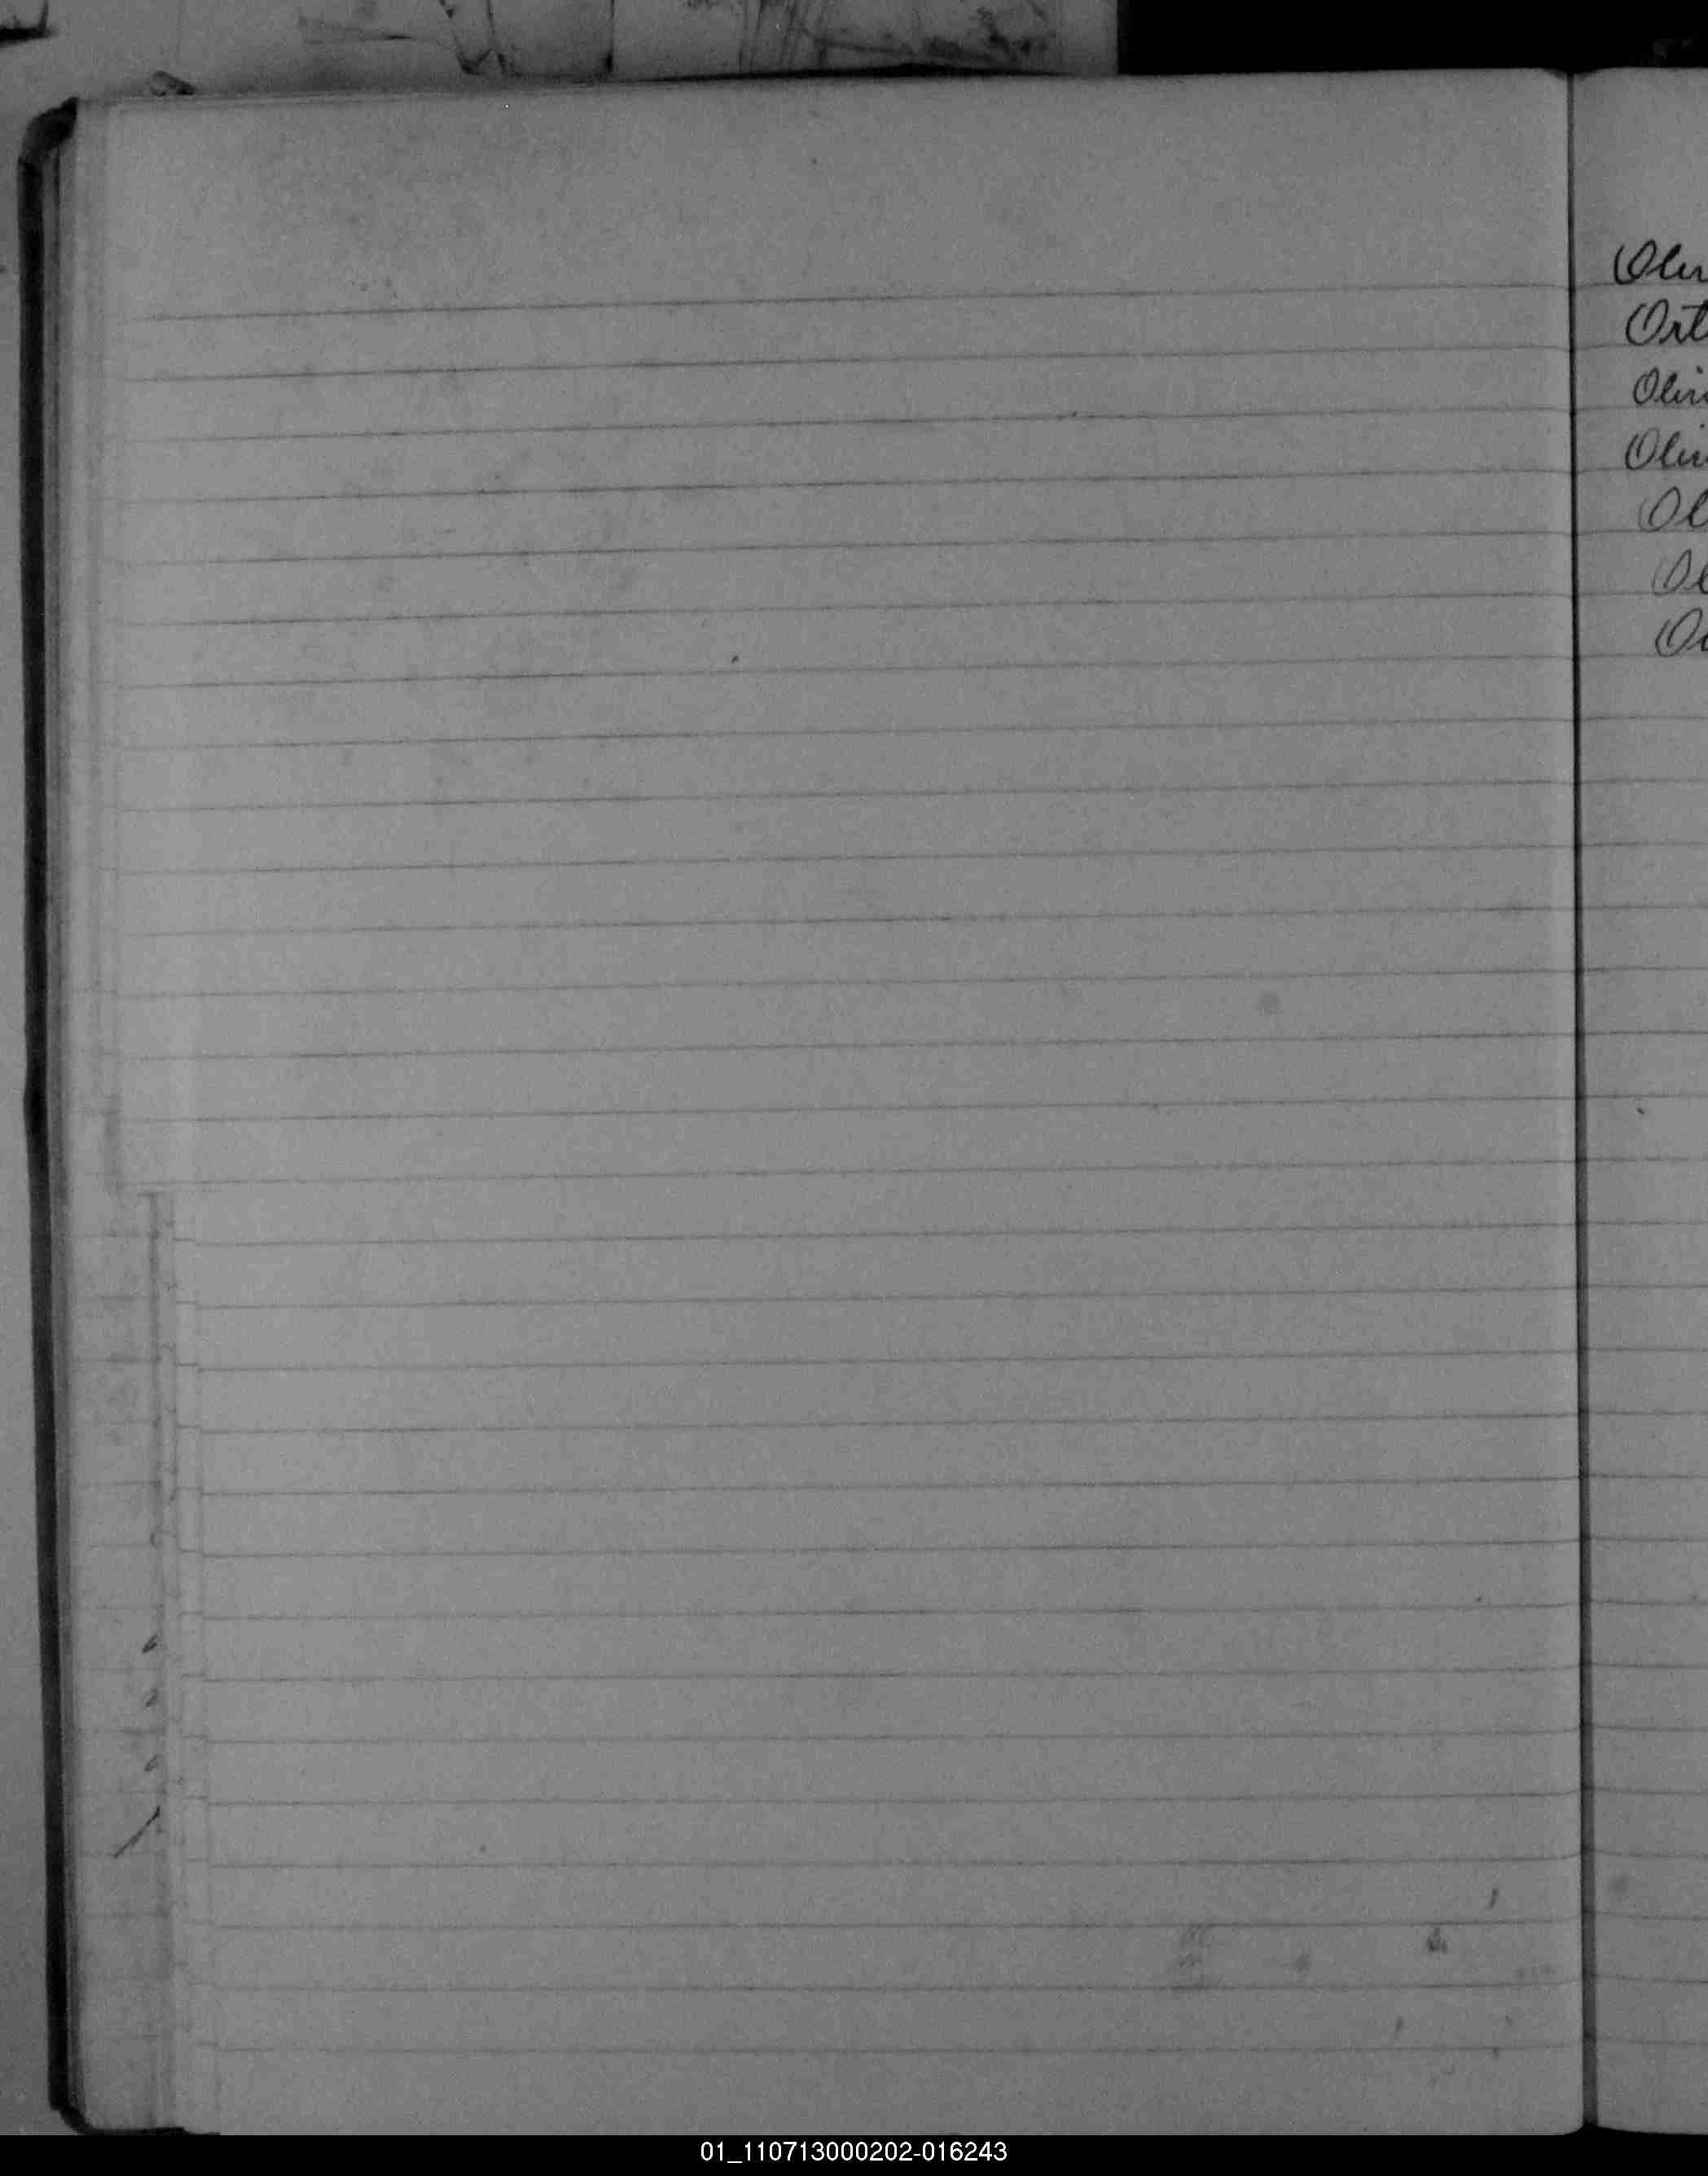 Oliv
Ort
Oliv
Oliv
Ol
Ol
01_110713000202-016243